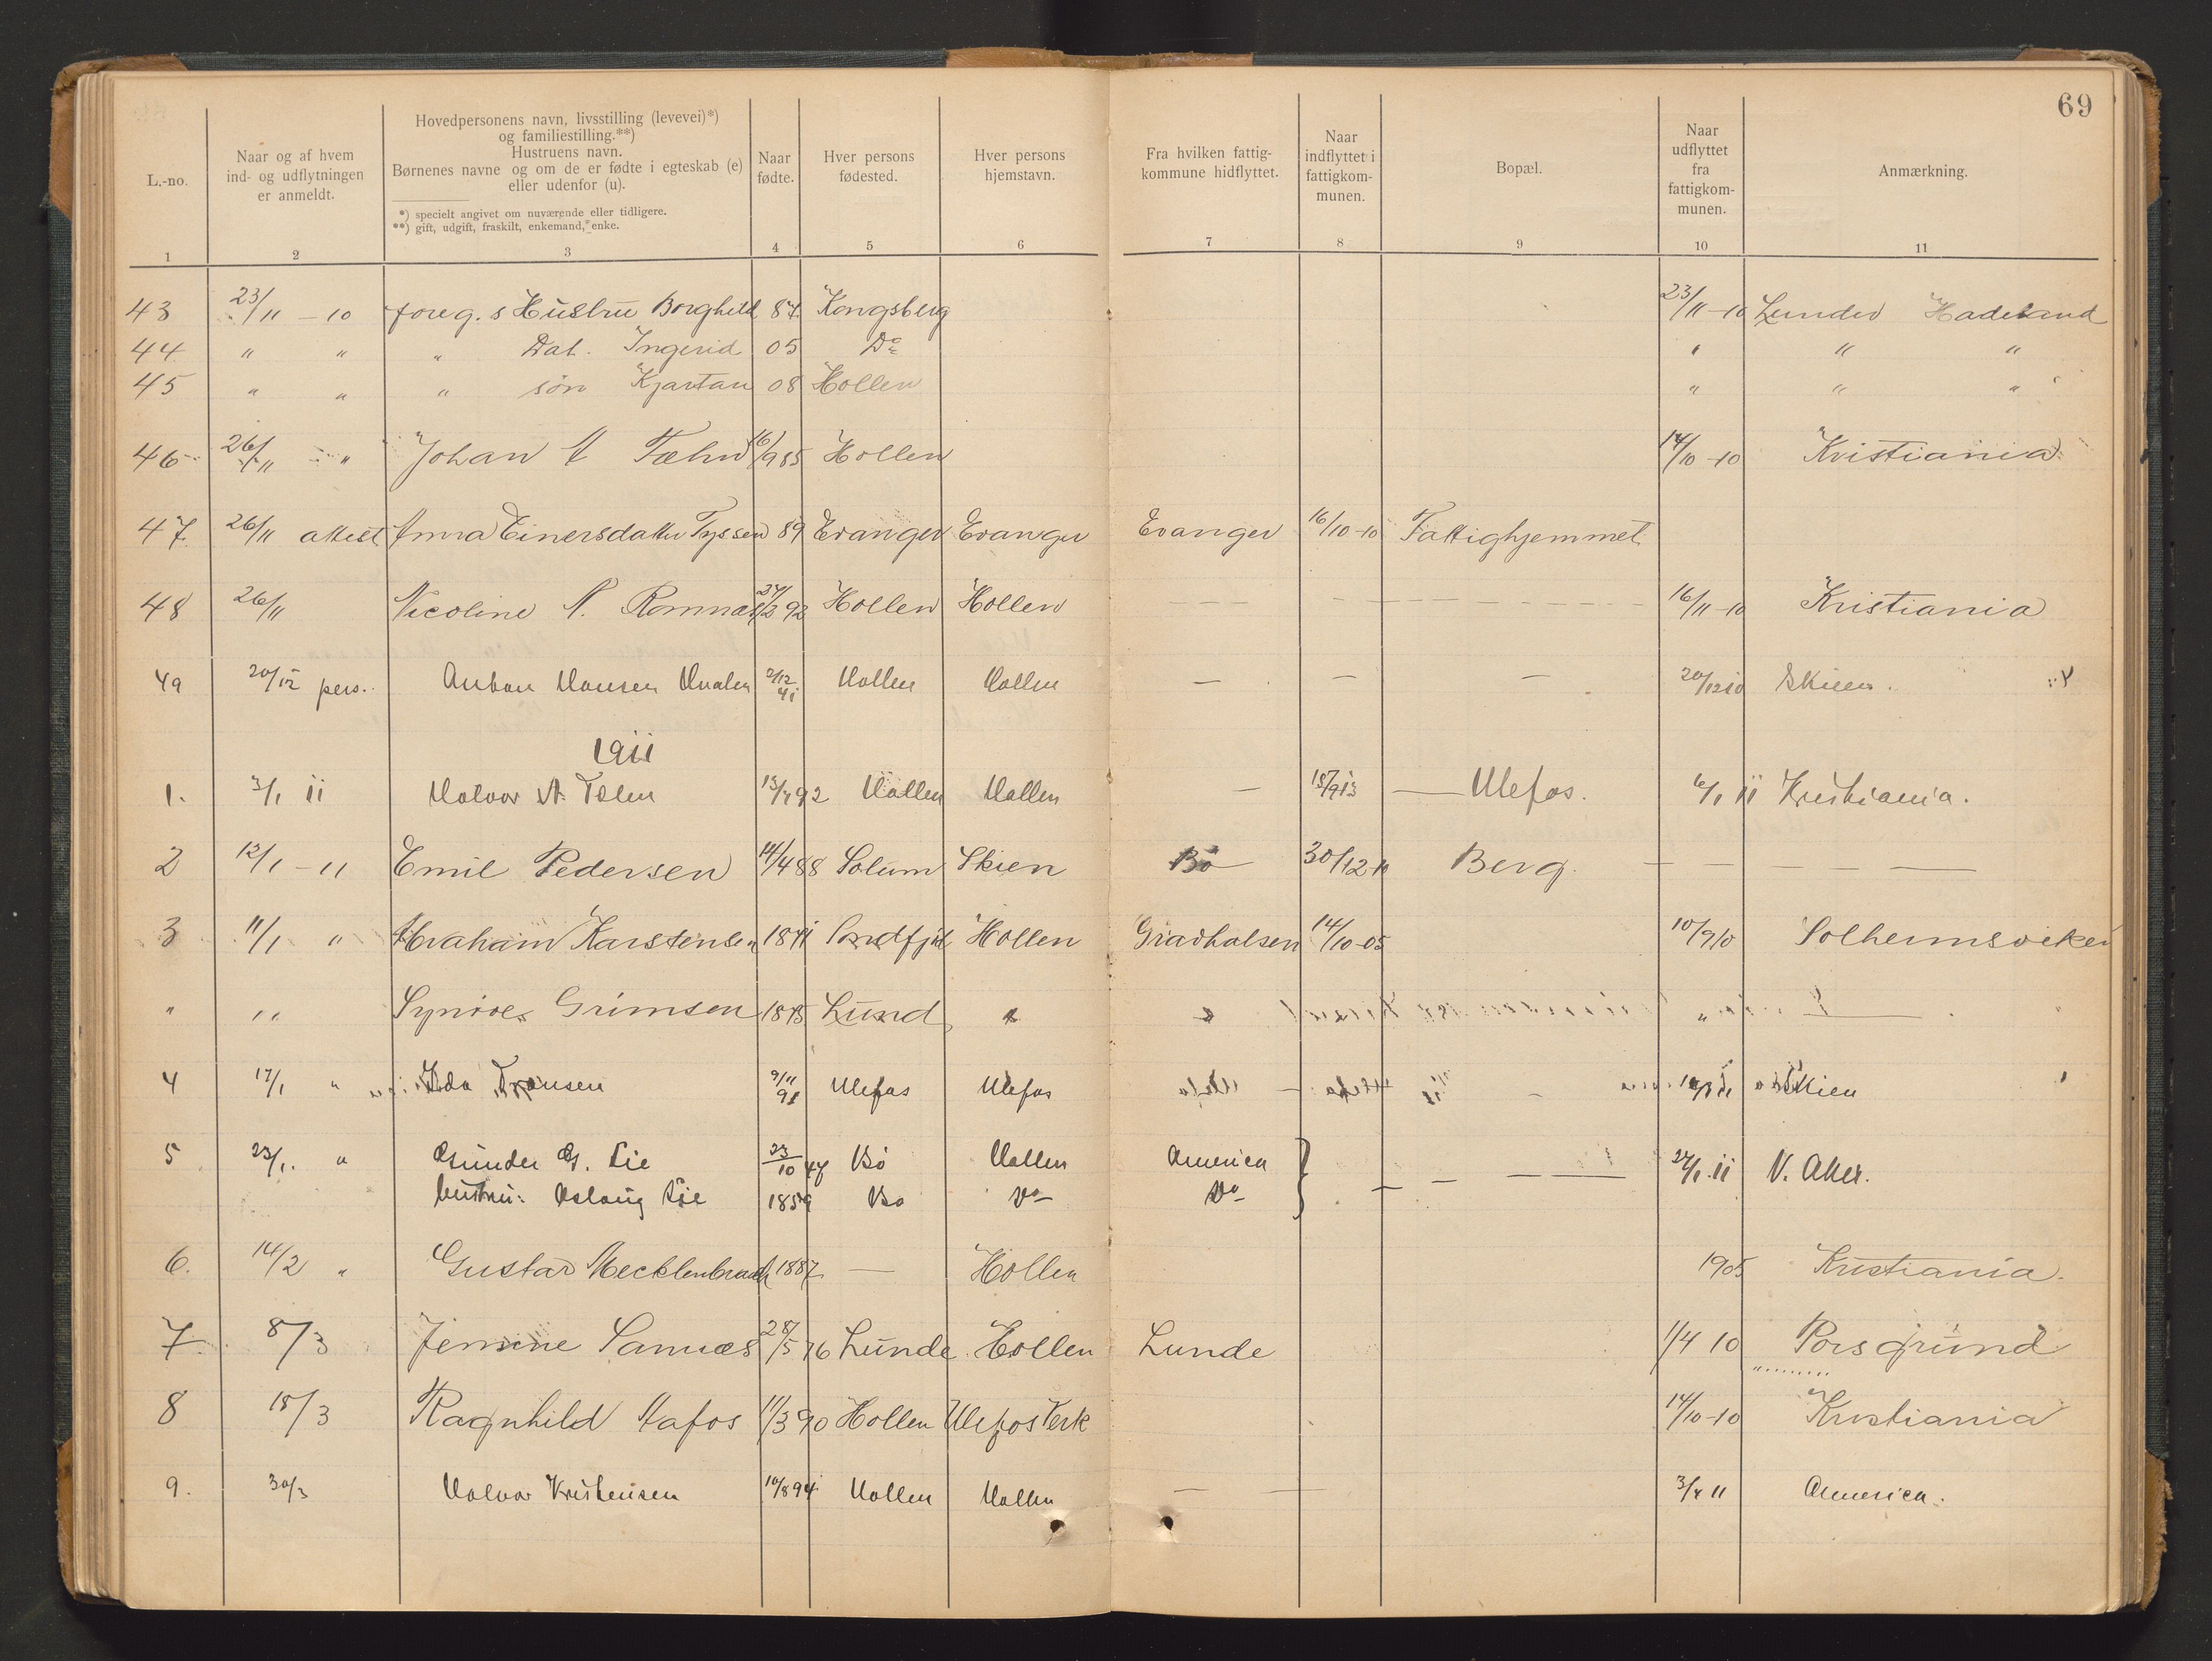 69
L.-no.
Naar og af hvem
ind- og udflytningen
er anmeldt.
Hovedpersonens navn, livsstilling (levevei)*)
og familiestilling.**)
Hustruens navn.
Børnenes navne og om de er fødte i egteskab (e)
eller udenfor (u).
*) specielt angivet om nuværende eller tidligere.
**) gift, udgift, fraskilt, enkemand, enke.
Naar
fødte.
Hver persons
fødested.
Hver persons
hjemstavn.
Fra hvilken fattig-
kommune hidflyttet.
Naar
indflyttet i
fattigkom-
munen.
Bopæl.
Naar
udflyttet
fra
fattigkom-
munen.
Anmærkning.
1 2 3 4 5 6 7 8 9 10 11
43 23/11 - 10 foreg. s Hustru Borghild 87 Kongsberg 23/11-10 Lunder Hadeland
44 " " " Dat. Ingerid 05 Do " " "
45 " " " søn Kjartan 08 Hollen " " "
46 26/11 " Johan A Tæhn 16/9 85 Hollen 14/10-10 Kristiania
47 26/11 attest Anna Einersdatter Tyssen 89 Evanger Evanger Evanger 16/10-10 Fattighjemmet
48 26/11 Nicoline N. Romnæs 92 Hollen Hollen — — 16/11-10 Kristiania
49 20/12 pers. Anton Hansen Hvalen 2/12 41 Hollen Hollen — — — 20/12 10 Skien.
1911
1. 3/1 11 Halvor A. Tolen 13/7 92 Hollen Hollen — — Ulefos. 6/1 11 Kristiania.
2 12/1 - 11 Emil Pedersen 14/4 88 Solum Skien Bø 30/12-10 Berg. — — — —
3 11/1 " Abraham Karstensen 1841 Hollen 14/10-05 10/9 10 Solheimsviken
" " Synøve Grimsen 1845 Lund " " "
4 17/1 " Ida Fransen 9/11 91 Ulefos Ulefos — — Skien
5 23/1. " Gunder G. Lie 23/10 47 Bø Hollen America } — — — 27/1 11 V. Aker.
hustru: Aslaug Lie 1859 Bø Do Do
6. 14/2 " Gustav Mecklenbrach 1887 — Hollen 1905 Kristiania.
7 8/3 Jensine Sannæs 28/5 76 Lunde Hollen Lunde 1/4 10 Porsgrund
8 18/3 Ragnhild Aafos 11/3 90 Hollen Ulefos Verk 14/10-10 Kristiania
9. 30/3 Halvor Kristensen 10/8 94 Hollen Hollen — — 3/4 11 America.